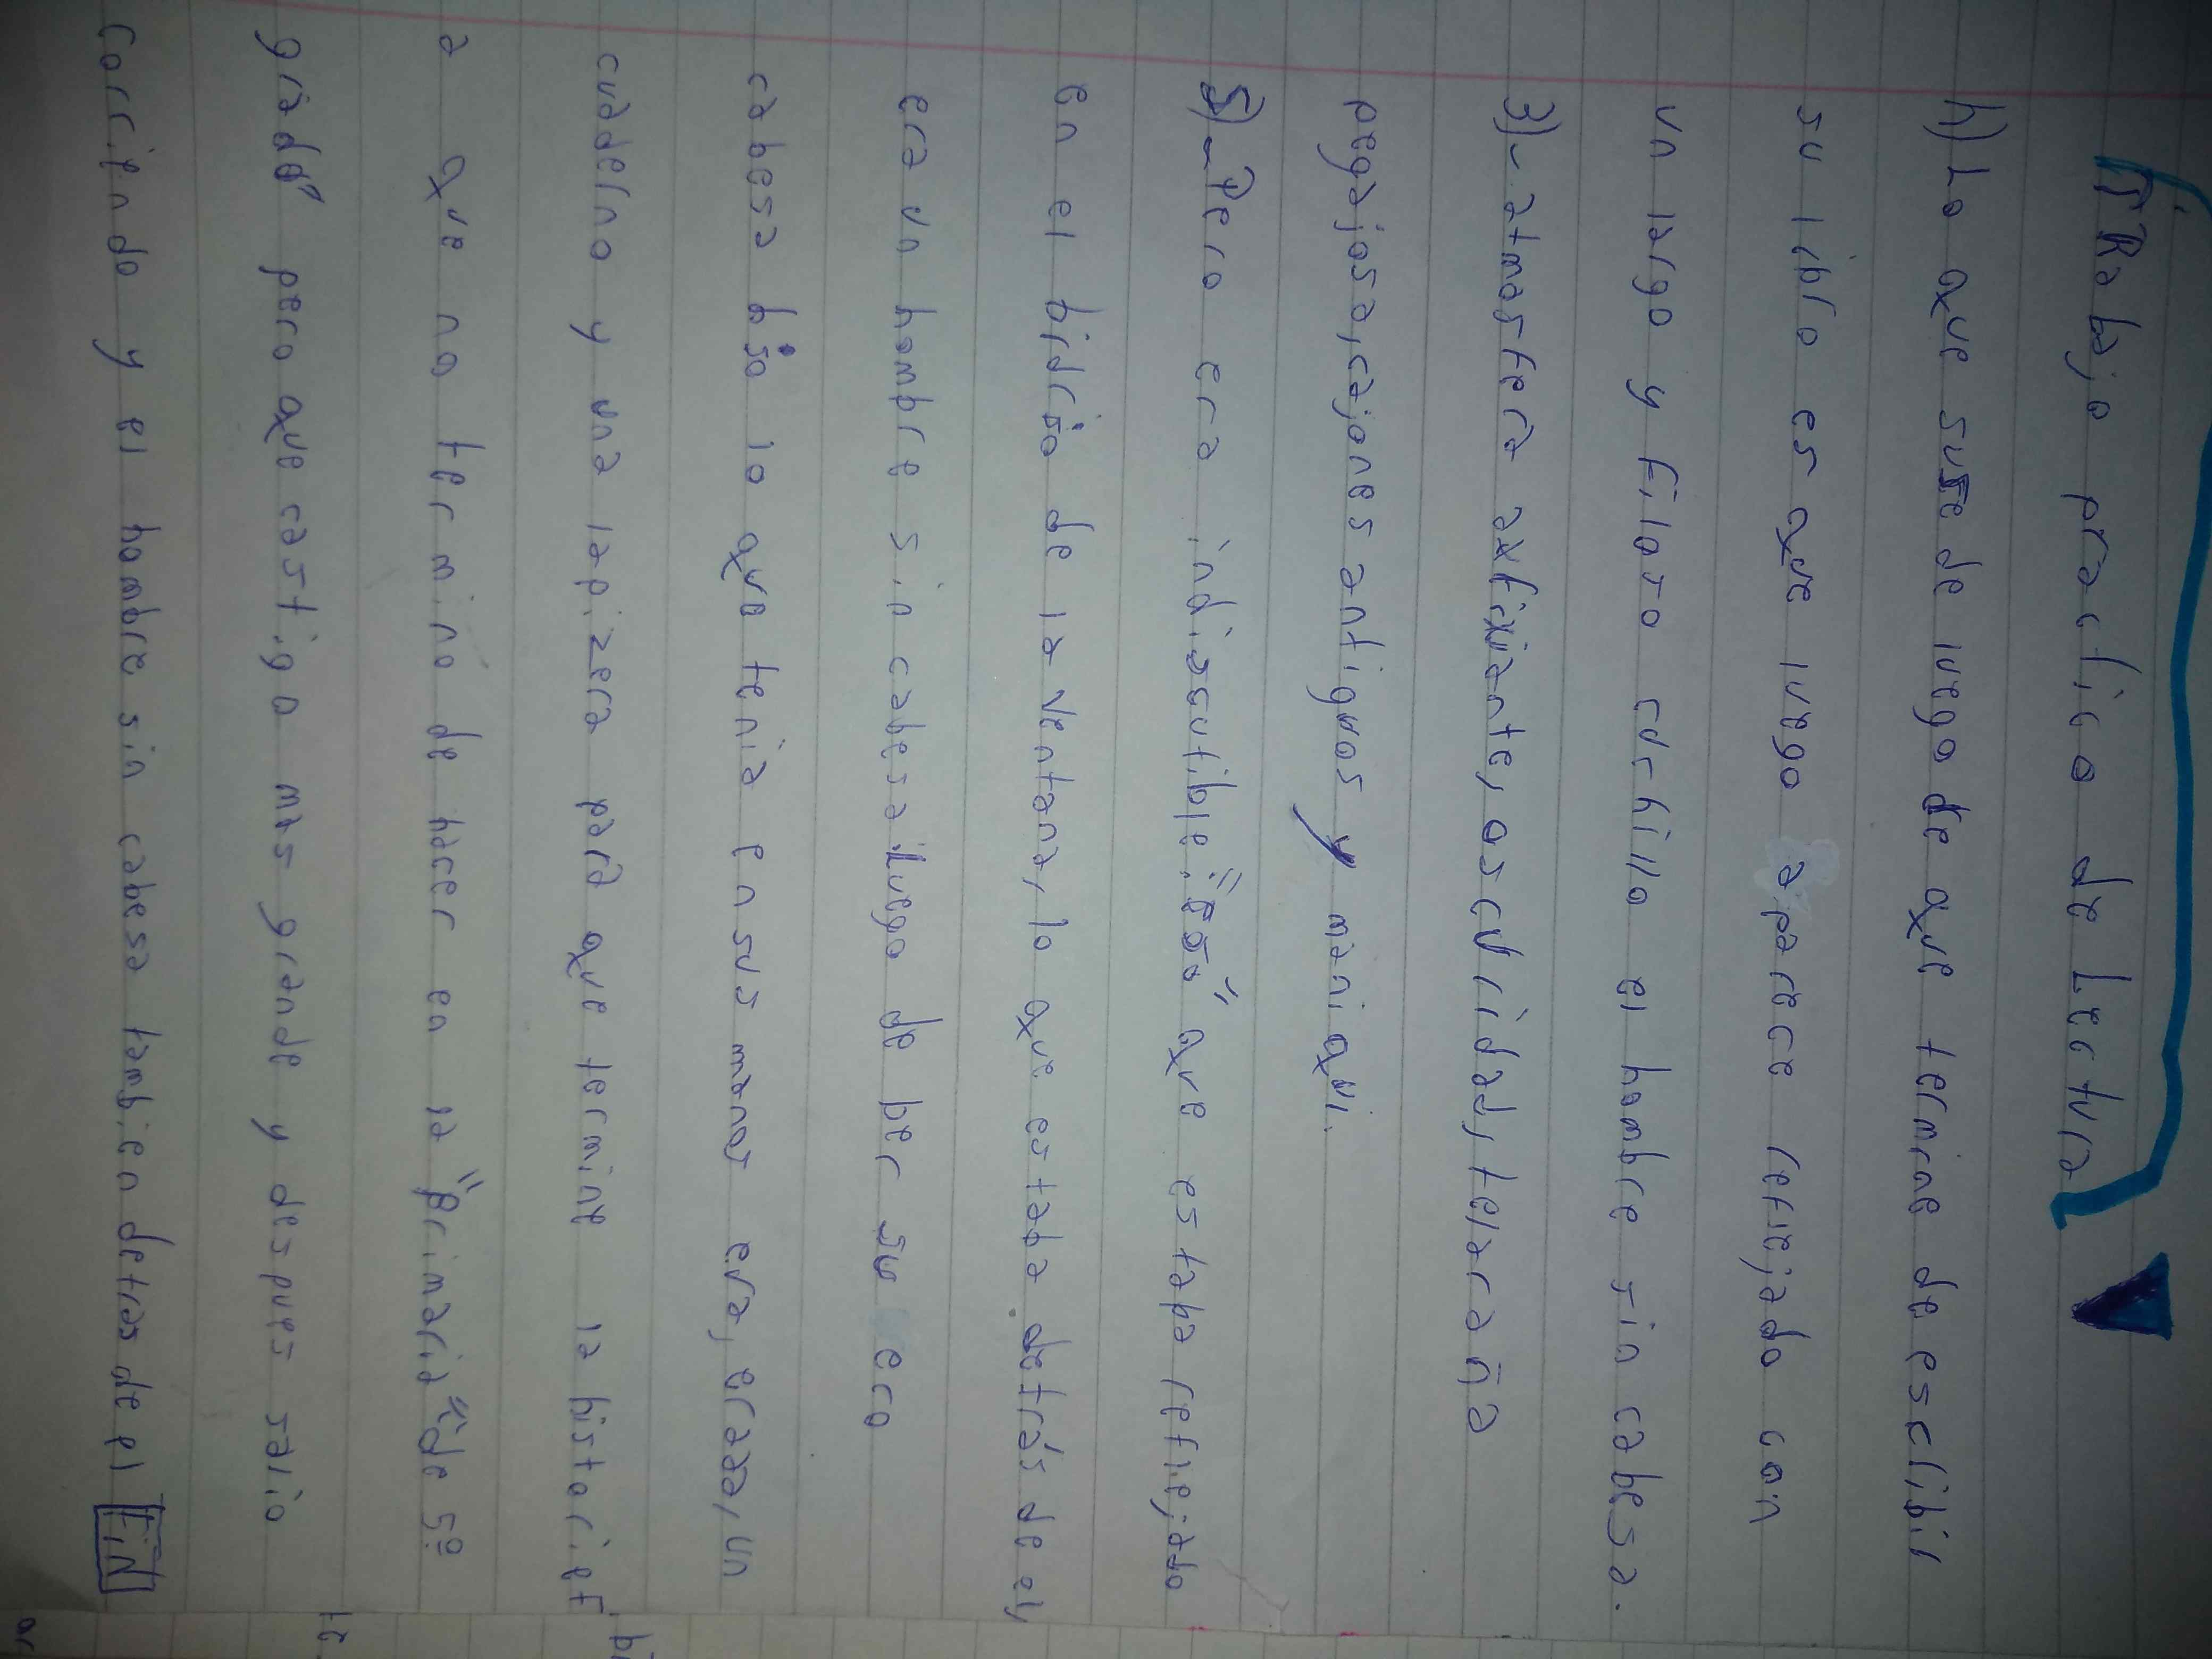 TRabajo practico de Lectura
h) Lo que suse de luego de que termine de escribir
su libro es que luego aparece reflejado con
un largo y filoso cuchillo el hombre sin cabesa.
3)- atmosfera axfixiante, oscuridad, telaraña
pegajosa, cajones antiguos y maniqui.
5)- Pero era indiscutible: "Eso" que estaba reflejado
en el bidrio de la ventana, lo que estaba detrás de el,
era un hombre sin cabesa luego de ber su
cabesa bio lo que tenia en sus manos era, eraaa, un
cuaderno y una lapizera para que termine la historieta
a que no termino de hacer en la "Primaria" de 5º
grado pero que castigo mas grande y despues salio
corriendo y el hombre sin cabesa tambien detras de el FiN